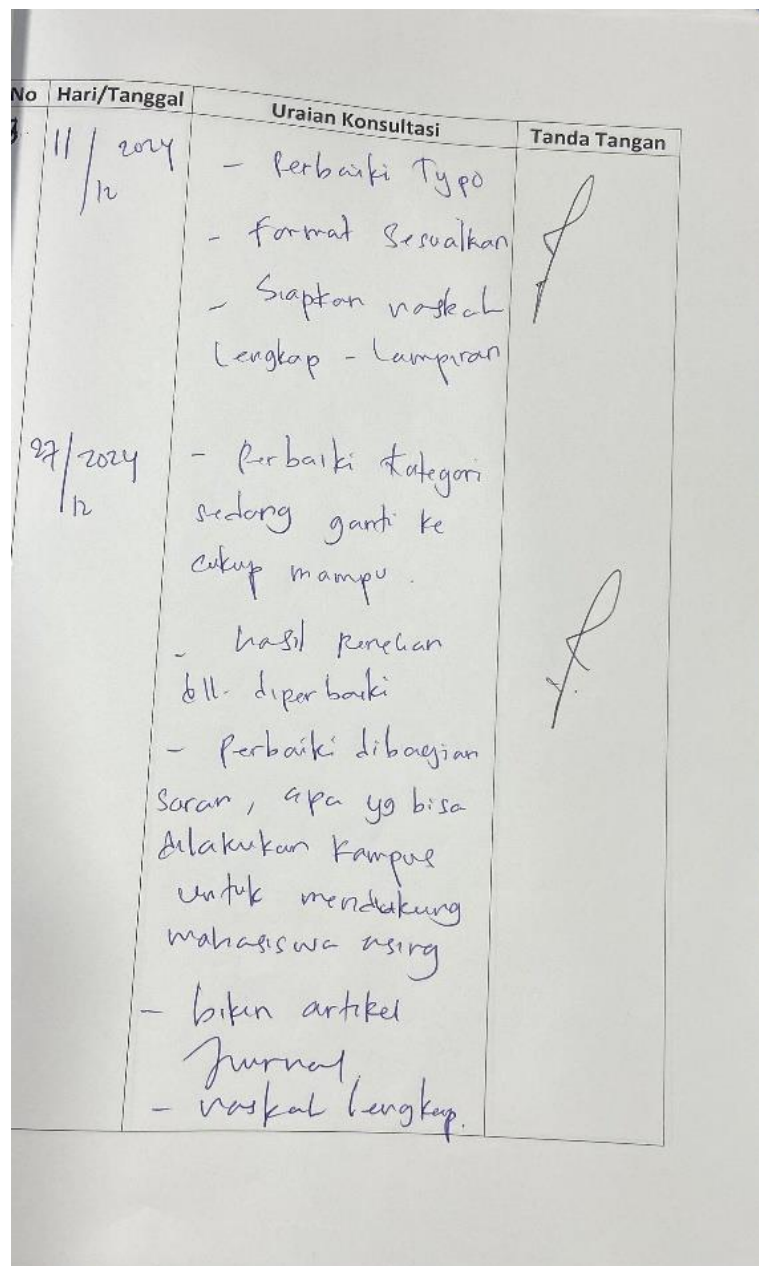 No Hari/Tanggal Uraian Konsultasi Tanda Tangan
3. 11/12 2024 - Perbaiki Typo
- Format Sesuaikan
- Siapkan naskah
Lengkap - Lampiran
27/12 2024 - Perbaiki Kategori
sedang ganti ke
cukup mampu.
- hasil
dll. diperbaiki
- Perbaiki dibagian
Saran, apa yg bisa
dilakukan Kampus
untuk mendukung
mahasiswa asing
- bikin artikel
Jurnal.
- naskah lengkap.